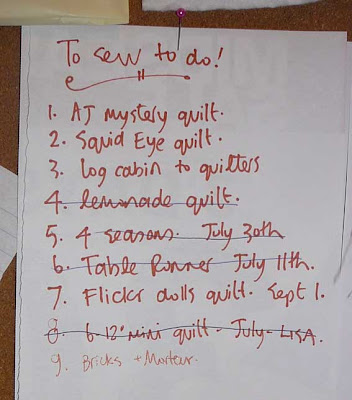 To sew to do!
1. AJ mystery quilt.
2. Squid Eye quilt.
3. Log cabin to quilters
4. lemonade quilt.
5. 4 seasons. July 30th
6. Table Runner July 11th.
7. Flickr dolls quilt. Sept 1.
8. 6-12" mini quilt - July - LISA.
9. Bricks + Mortar.